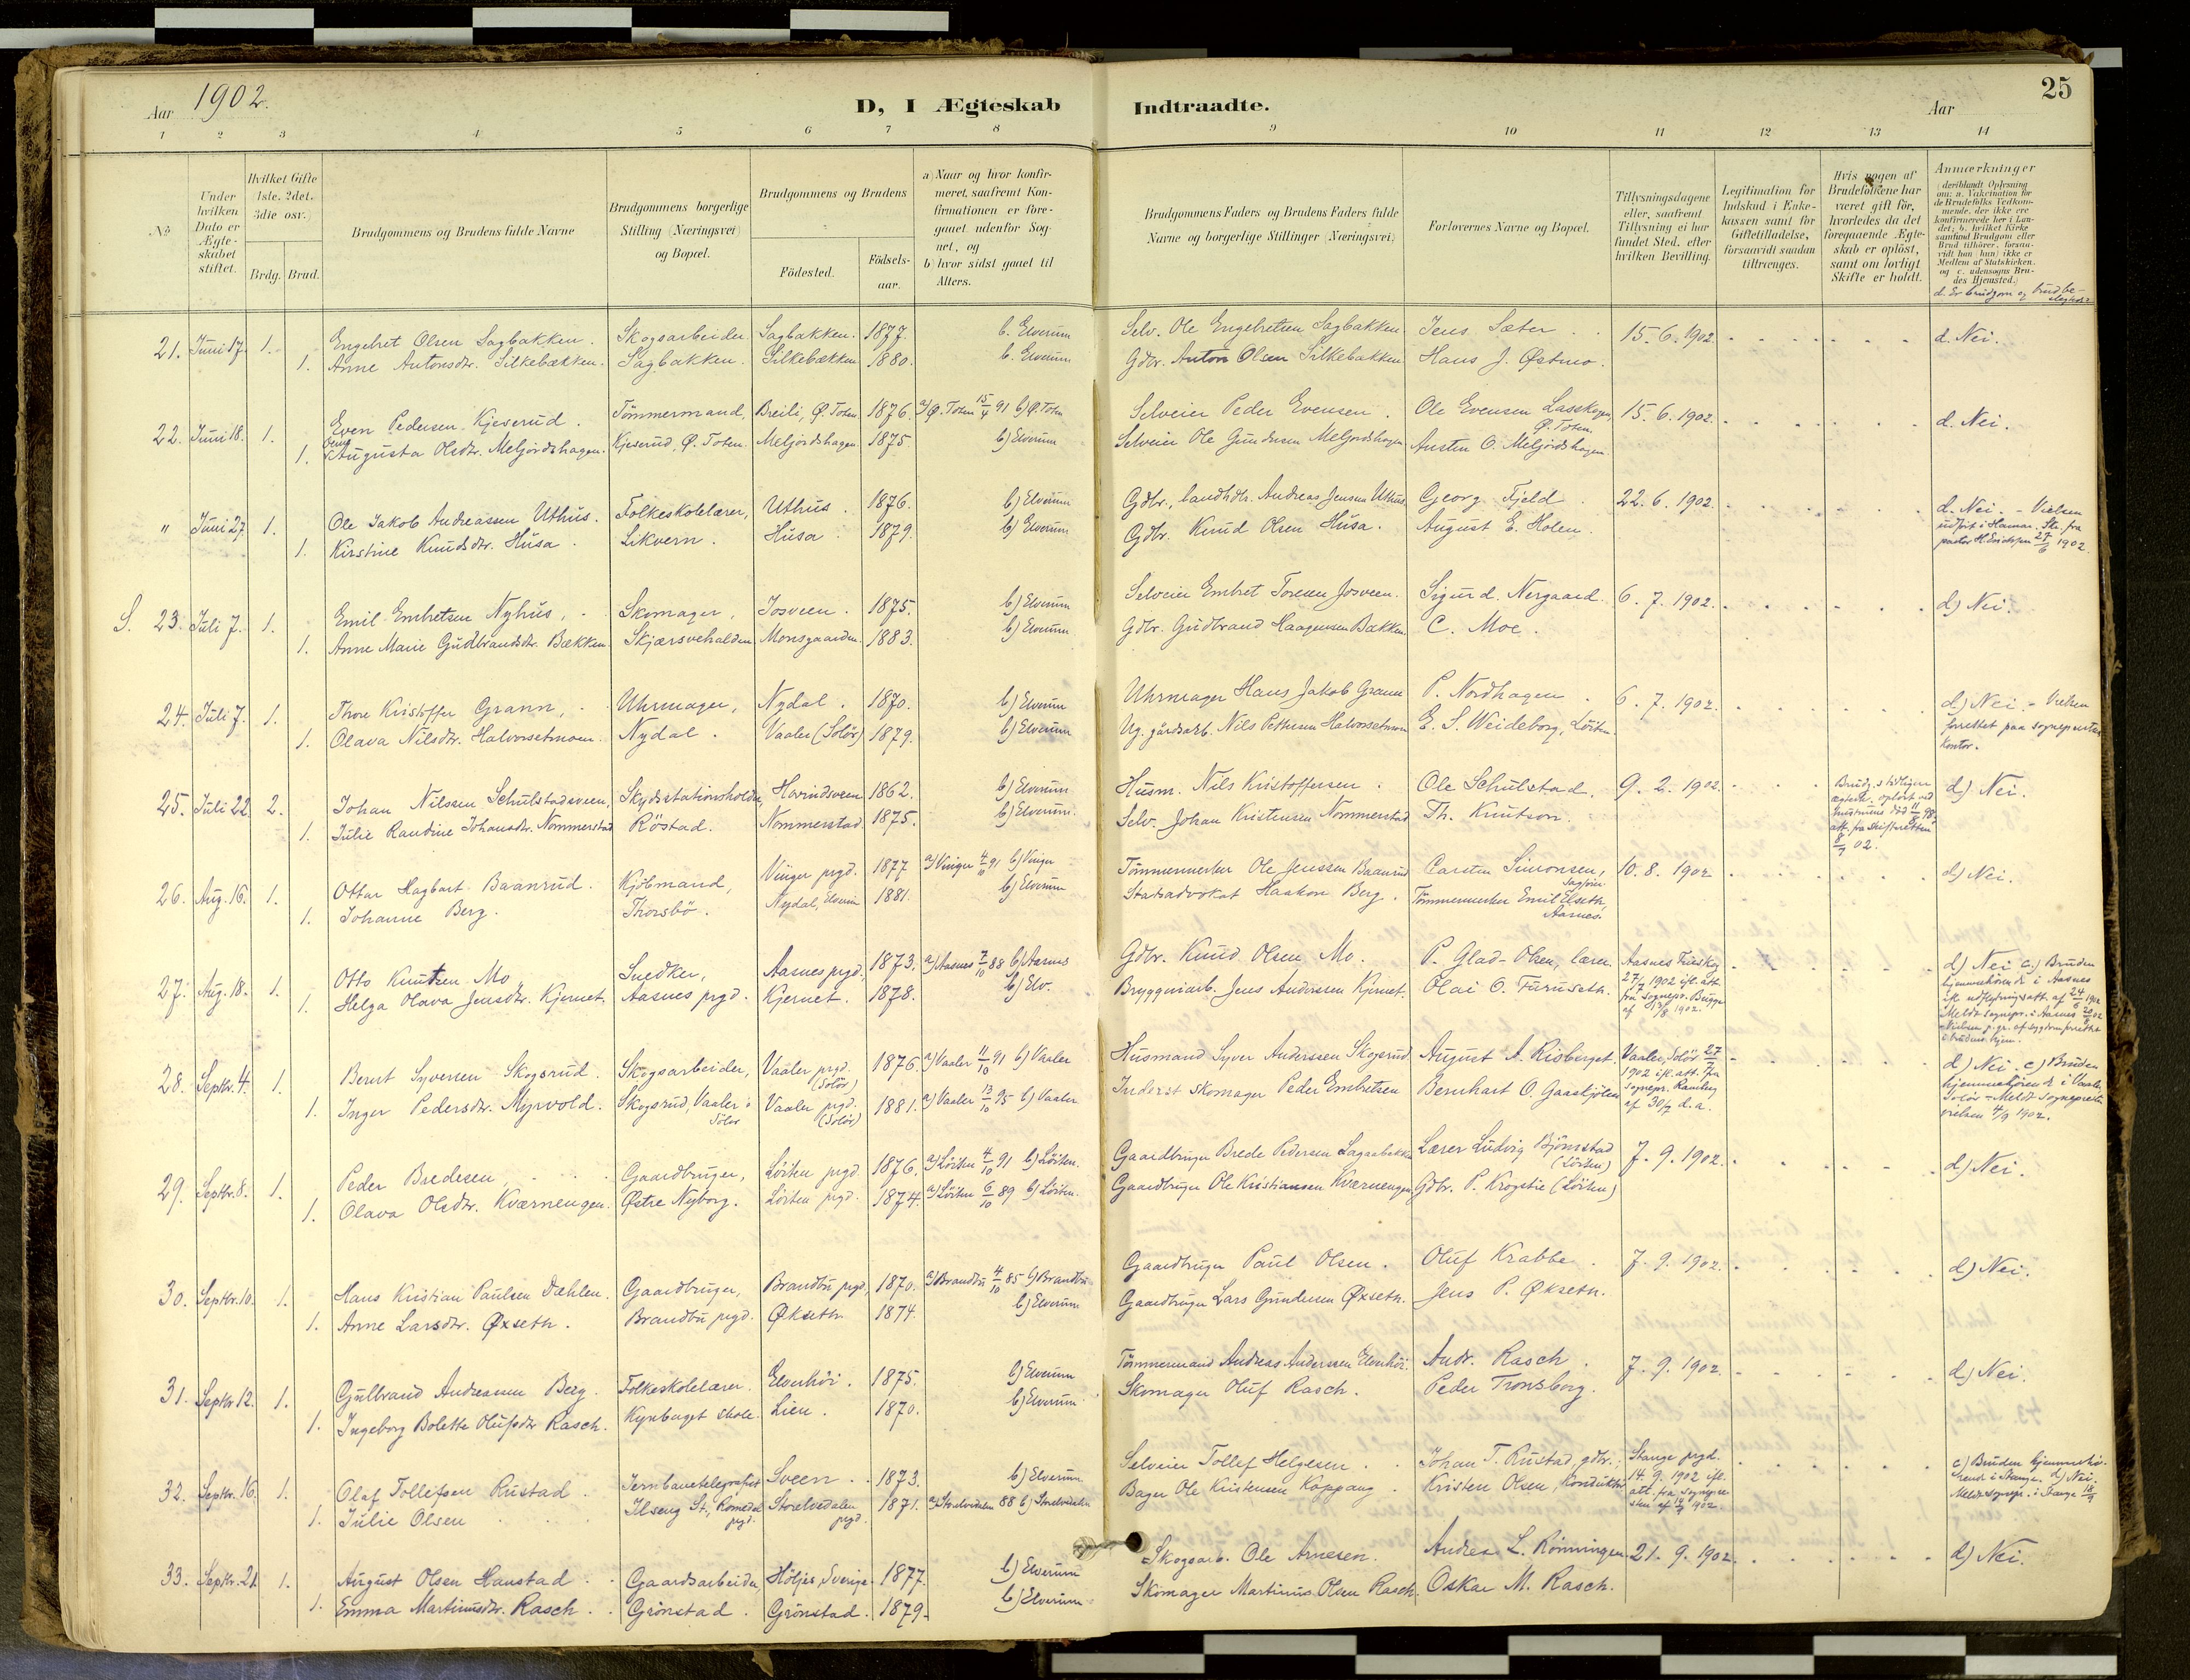 Aar 1902.
D, I Ægteskab Indtraadte.
Aar
25
1 2 3 4 5 6 7 8 9 10 11 12 13 14
No
Under hvilken Dato er Ægte-skabet stiftet.
Hvilket Gifte (1ste, 2det, 3die osv.)
Brdg. Brud.
Brudgommens og Brudens fulde Navne
Brudgommens borgerlige Stilling (Næringsvei) og Bopæl.
Brudgommens og Brudens
Födested.
Födsels-aar.
a) Naar og hvor konfir-meret, saafremt Kon-firmationen er fore-gaaet udenfor Sog-net, og
b) hvor sidst gaaet til Alters.
Brudgommens Faders og Brudens Faders fulde Navne og borgerlige Stillinger (Næringsvei)
Forlovernes Navne og Bopæl.
Tillysningsdagene eller, saafremt Tillysning ei har fundet Sted, efter hvilken Bevilling.
Legitimation for Indskud i Enke-kassen samt for Giftetilladelse, forsaavidt saadan tiltrænges.
Hvis nogen af Brudefolkene har været gift för, hvorledes da det foregaaende Ægte-skab er oplöst, samt om lovligt Skifte er holdt.
Anmærkninger
(deriblandt Oplysning om: a. Vakcination for de Brudefolks Vedkom-mende, der ikke ere konfirmerede her i Lan-det; b. hvilket Kirke-samfund Brudgom eller Brud tilhörer, forsaa-vidt han (hun) ikke er Medlem af Statskirken, og c. udensogns Bru-des Hjemsted.)
d. Er brudgom og brud be-slægtede?
21. Juni 17. 1. Engebret Olsen Sagbakken. Skogsarbeider Sagbakken. 1877. b. Elverum Selv. Ole Engebretsen Sagbakken. Jens Sæter. 15. 6. 1902. d. Nei.
1. Anne Antonsdtr. Silkebækken. Sagbakken. Silkebækken 1880. b. Elverum Gdbr. Anton Olsen Silkebakken. Hans J. Østmo.
22. Juni 18. 1. Even Pedersen Kjeserud. Tömmermand, Breili, Ø. Toten 1876. a) Ø. Toten 15/4 91 b) Ø. Toten Selveier Peder Evensen. Ole Evensen Lasskogen, Ø. Toten. 15. 6. 1902. d. Nei.
1. Augusta Olsdtr. Meljordshagen. Kjeserud, Ø. Toten. Meljordshagen. 1875. b) Elverum Selveier Ole Gundersen Meljordshagen Austen O. Meljordshagen.
" Juni 27. 1. Ole Jakob Andreassen Uthus. Folkeskolelærer, Uthus. 1876. b) Elverum Gdbr., landhdlr. Andreas Jensen Uthus. Georg Fjeld. 22. 6. 1902. d. Nei. - Vielsen udfört i Hamar. Sk. fra pastor H. 27/6 1902.
1. Kirstine Knudsdtr. Husa. Likvern. Husa. 1879. b) Elverum Gdbr. Knud Olsen Husa. August E. Holen.
S. 23. Juli 7. 1. Emil Embretsen Nyhus, Skomager, Josveen. 1875. b) Elverum Selveier Embret Toresen Josveen. Sigurd Nergaard. 6. 7. 1902. d) Nei.
1. Anne Marie Gudbrandsdtr. Bækken. Skjærsvehalden Monsgaarden. 1883. b) Elverum Gdbr. Gudbrand Haagensen Bækken. C. Moe.
24. Juli 7. 1. Thore Kristoffer Grann, Uhrmager, Nydal. 1870. b) Elverum Uhrmager Hans Jakob Grann P. Nordhagen. 6. 7. 1902. d) Nei. - Vielsen forrettet paa sogneprestens kontor.
1. Olava Nilsdtr. Halvorsetmoen. Nydal. Vaaler (Solör) 1879. b) Elverum Ug. gårdsarb. Nils Pettersen Halvorsetmoen E. S. Weideborg, Löiten.
25. Juli 22. 2. Johan Nilssen Schulstadsveen, Skydsstationsholder, Hovindsveen 1862. b) Elverum Husm. Nils Kristoffersen. Ole Schulstad. 9. 2. 1902. Brudg.s tidligere ægtesk. oplöst ved hustruens död 11/ 98. att. fra skifteretten 8/7 02. d) Nei.
1. Julie Randine Johansdtr. Nommerstad Röstad. Nommerstad. 1875. b) Elverum. Selv. Johan Kristensen Nommerstad Th. Knutson.
26. Aug. 16. 1. Ottar Hagbart Baanrud. Kjöbmand, Vinger prgd. 1877 a) Vinger 4/10 91 b) Vinger Tömmermerker Ole Jenssen Baanrud Carsten Simonsen, Sagfører 10. 8. 1902 d) Nei.
1. Johanne Berg. Thorsbö. Nydal, Elverum 1881. b) Elverum Statsadvokat Haakon Berg. Tömmermerker Emil Elseth, Aarnes.
27. Aug. 18. 1. Otto Knutsen Mo Snedker, Aasnes prgd. 1873. a) Aasnes 7/10 88 b) Aasnes Gdbr. Knud Olsen Mo. P. Glad-Olsen, lærer. Aasnes Finskog 27/7 1902 ifl. att. fra sognepr. Bugge af 13/8 1902. d) Nei c) Bruden hjemmehörende i Aasnes ifl. udflytningsatt. af 24/6 1902 Meldt sognepr. i Aasnes 20/8 02 Vielsen p. gr. af sygdom forrettet i brudens hjem.
1. Helga Olava Jensdtr. Kjernet. Aasnes prgd. Kjernet. 1878. b) Elv. Bryggeriarb. Jens Anderssen Kjernet. Olai O. Furuseth.
28. Septbr. 4. 1. Bernt Syversen Skogsrud. Skogsarbeider, Vaaler prgd. (Solör) 1876. a) Vaaler 11/10 91 b) Vaaler Husmand Syver Anderssen Skogsrud. August A. Risberget. Vaaler, Solör 27/7 1902 ifl. att. fra sognepr. Ramberg af 30/7 d. a. d) Nei. c) Bruden hjemmehörende i Vaaler, Solör - Meldt sognepresten vielsen 4/9 1902.
1. Inger Pedersdtr. Myrvold. Skogsrud, Vaaler i Solör Vaaler prgd. (Solör) 1881. a) Vaaler 13/10 95 b) Vaaler Inderst skomager Peder Embretsen Bernhart O. Gaastjölen
29. Septbr. 8. 1. Peder Bredesen, Gaardbruger, Löiten prgd. 1876. a) Löiten 4/10 91 b) Löiten. Gaardbruger Brede Pedersen Sagaabakken Lærer Ludvig Björnstad (Löiten) 7. 9. 1902. d) Nei.
1. Olava Olsdtr. Kværnengen. Østre Nyborg. Löiten prgd. 1874. a) Löiten 6/10 89 b) Löiten. Gaardbruger Ole Kristiansen Kværnengen, Gdbr. P. Krogstie (Löiten)
30. Septbr. 10. 1. Hans Kristian Paulsen Dæhlen. Gaardbruger, Brandbu prgd. 1870. a) Brandbu 4/10 85 b) Brandbu Gaardbruger Paul Olsen. Oluf Krabbe. 7. 9. 1902. d) Nei.
1. Anne Larsdtr. Øxseth. Brandbu prgd. Økseth 1874. b) Elverum Gaardbruger Lars Gundersen Øxseth. Jens P. Økseth.
31. Septbr 12. 1. Gulbrand Andreassen Berg. Folkeskolelærer. Elverhöi. 1875. b) Elverum Tömmermand Andreas Anderssen Elverhöi. Andr. Rasch. 7. 9. 1902. d) Nei.
1. Ingeborg Bolette Olufsdtr Rasch. Kynberget skole. Lien. 1870. b) Elverum Skomager Oluf Rasch. Peder Tronsborg.
32. Septbr. 16. 1. Olaf Tollefsen Rustad. Jernbanetelegrafist Sveen. 1873. b) Elverum Selveier Tollef Helgesen. Johan T. Rustad, gdbr., Stange prgd. 14. 9. 1902 ifl. att. fra sognepresten af 14/9 1902. c) Bruden hjemmehörende i Stange. d) Nei. Meldt sognepr. i Stange 18/9
1. Julie Olsen Ilseng St., Romedal prgd. Storelvedalen prgd. 1871. a) Storelvedalen 88 b) Storelvedalen Bager Ole Kristensen Koppang. Kristen Olsen, Konduktör
33. Septbr. 21. 1. August Olsen Hanstad. Gaardsarbeider, Höljes, Sverige. 1877. b) Elverum Skogsarb. Ole Arnesen. Andreas L. Rönningen 21. 9. 1902. d) Nei.
1. Emma Martinusdtr. Rasch. Grönstad. Grönstad. 1879. b) Elverum Skomager Martinus Olsen Rasch. Oskar M. Rasch.